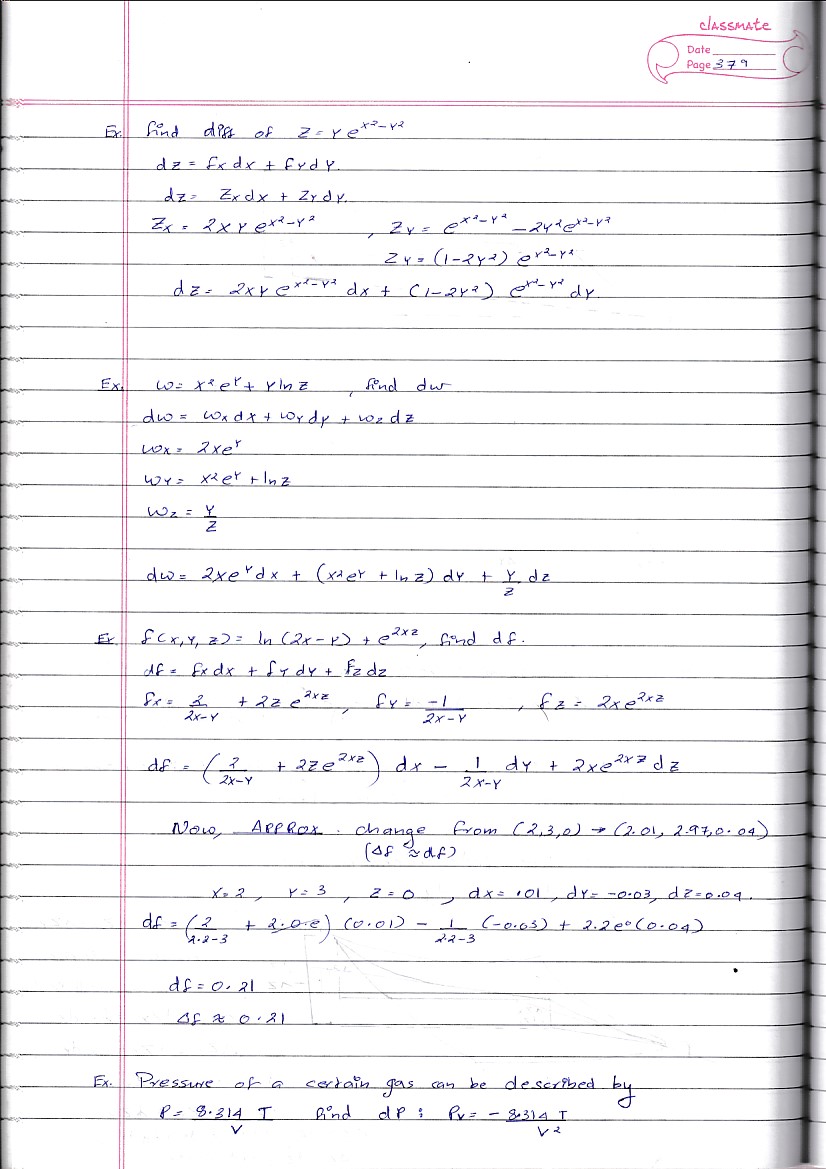 classmate
Date
Page 379
Ex. find diff of z = y e^(x²-y²)
dz = fx dx + fy dy.
dz = Zx dx + Zy dy.
Zx = 2xy e^(x²-y²) , Zy = e^(x²-y²) - 2y²e^(x²-y²)
Zy = (1-2y²) e^(x²-y²)
dz = 2xy e^(x²-y²) dx + (1-2y²) e^(x²-y²) dy.
Ex. w = x²e^y + y ln z , find dw
dw = wx dx + wy dy + wz dz
wx = 2xe^y
wy = x²e^y + ln z
wz = y/z
dw = 2xe^y dx + (x²e^y + ln z) dy + y/z dz
Ex f(x, y, z) = ln (2x-y) + e^(2xz), find df.
df = fx dx + fy dy + fz dz
fx = 2/(2x-y) + 2z e^(2xz) , fy = -1/(2x-y) , fz = 2xe^(2xz)
df = (2/(2x-y) + 2ze^(2xz)) dx - 1/(2x-y) dy + 2xe^(2xz) dz
Now, APPROX. change from (2,3,0) → (2.01, 2.97, 0.04)
(Δf ≈ df)
x=2 , y=3 , z=0 , dx = .01 , dy = -0.03, dz = 0.04.
df = (2/(2.2-3) + 2.0.e) (0.01) - 1/(2.2-3) (-0.03) + 2.2e^0 (0.04)
df = 0.21
Δf ≈ 0.21
Ex. Pressure of a certain gas can be described by
P = 8.314 T/V find dP : Pv = - 8.314 T/V²